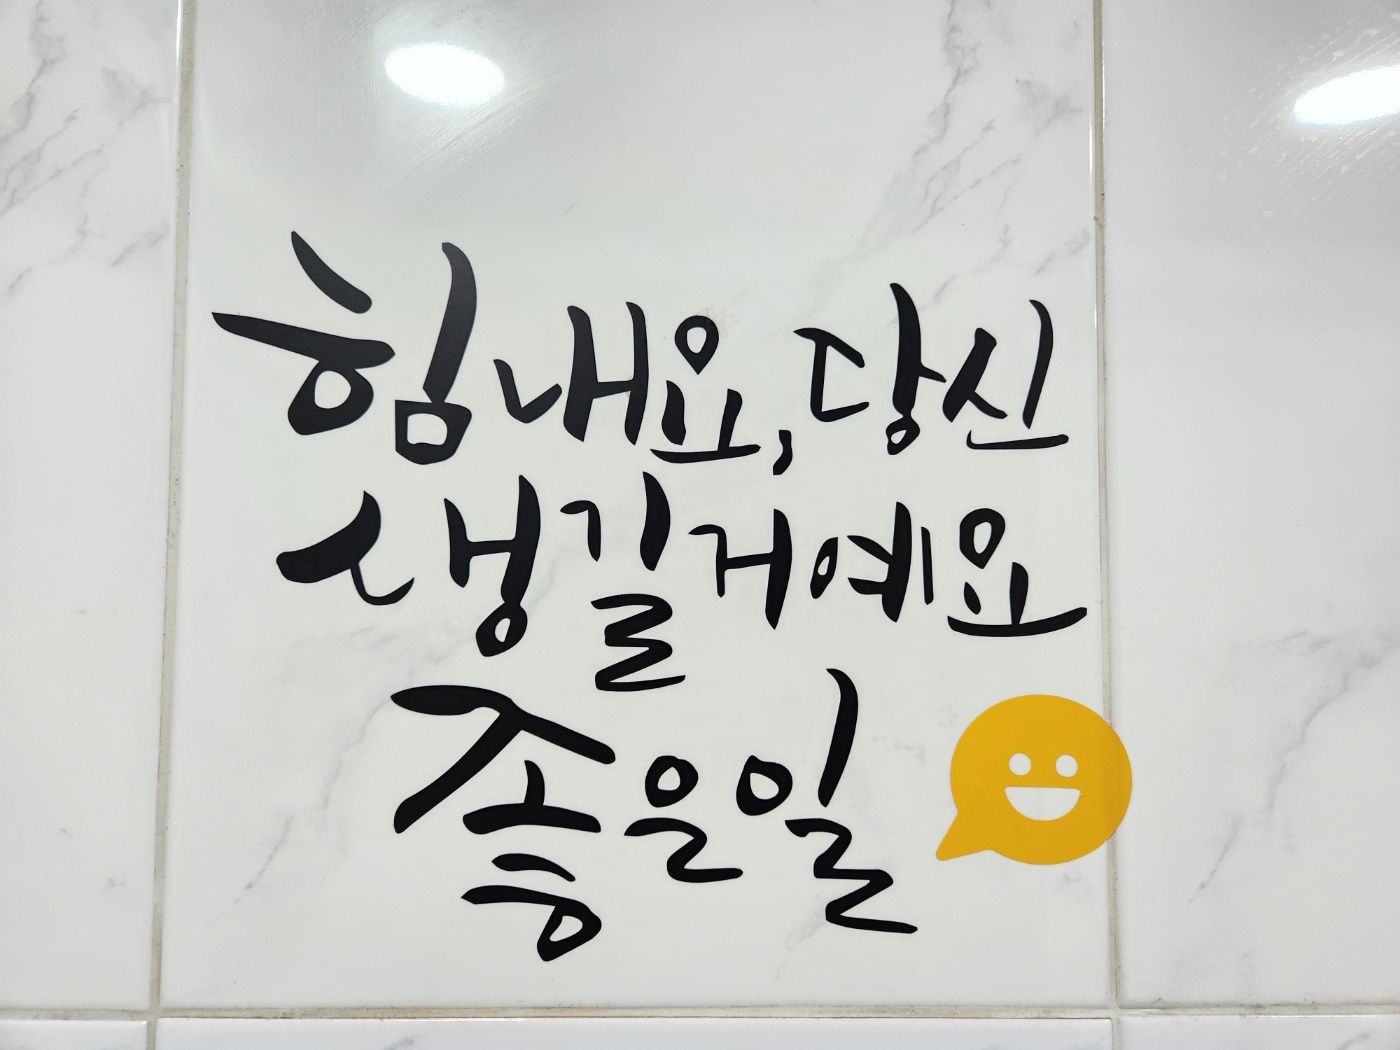 힘내요, 당신
생길거예요
좋은일